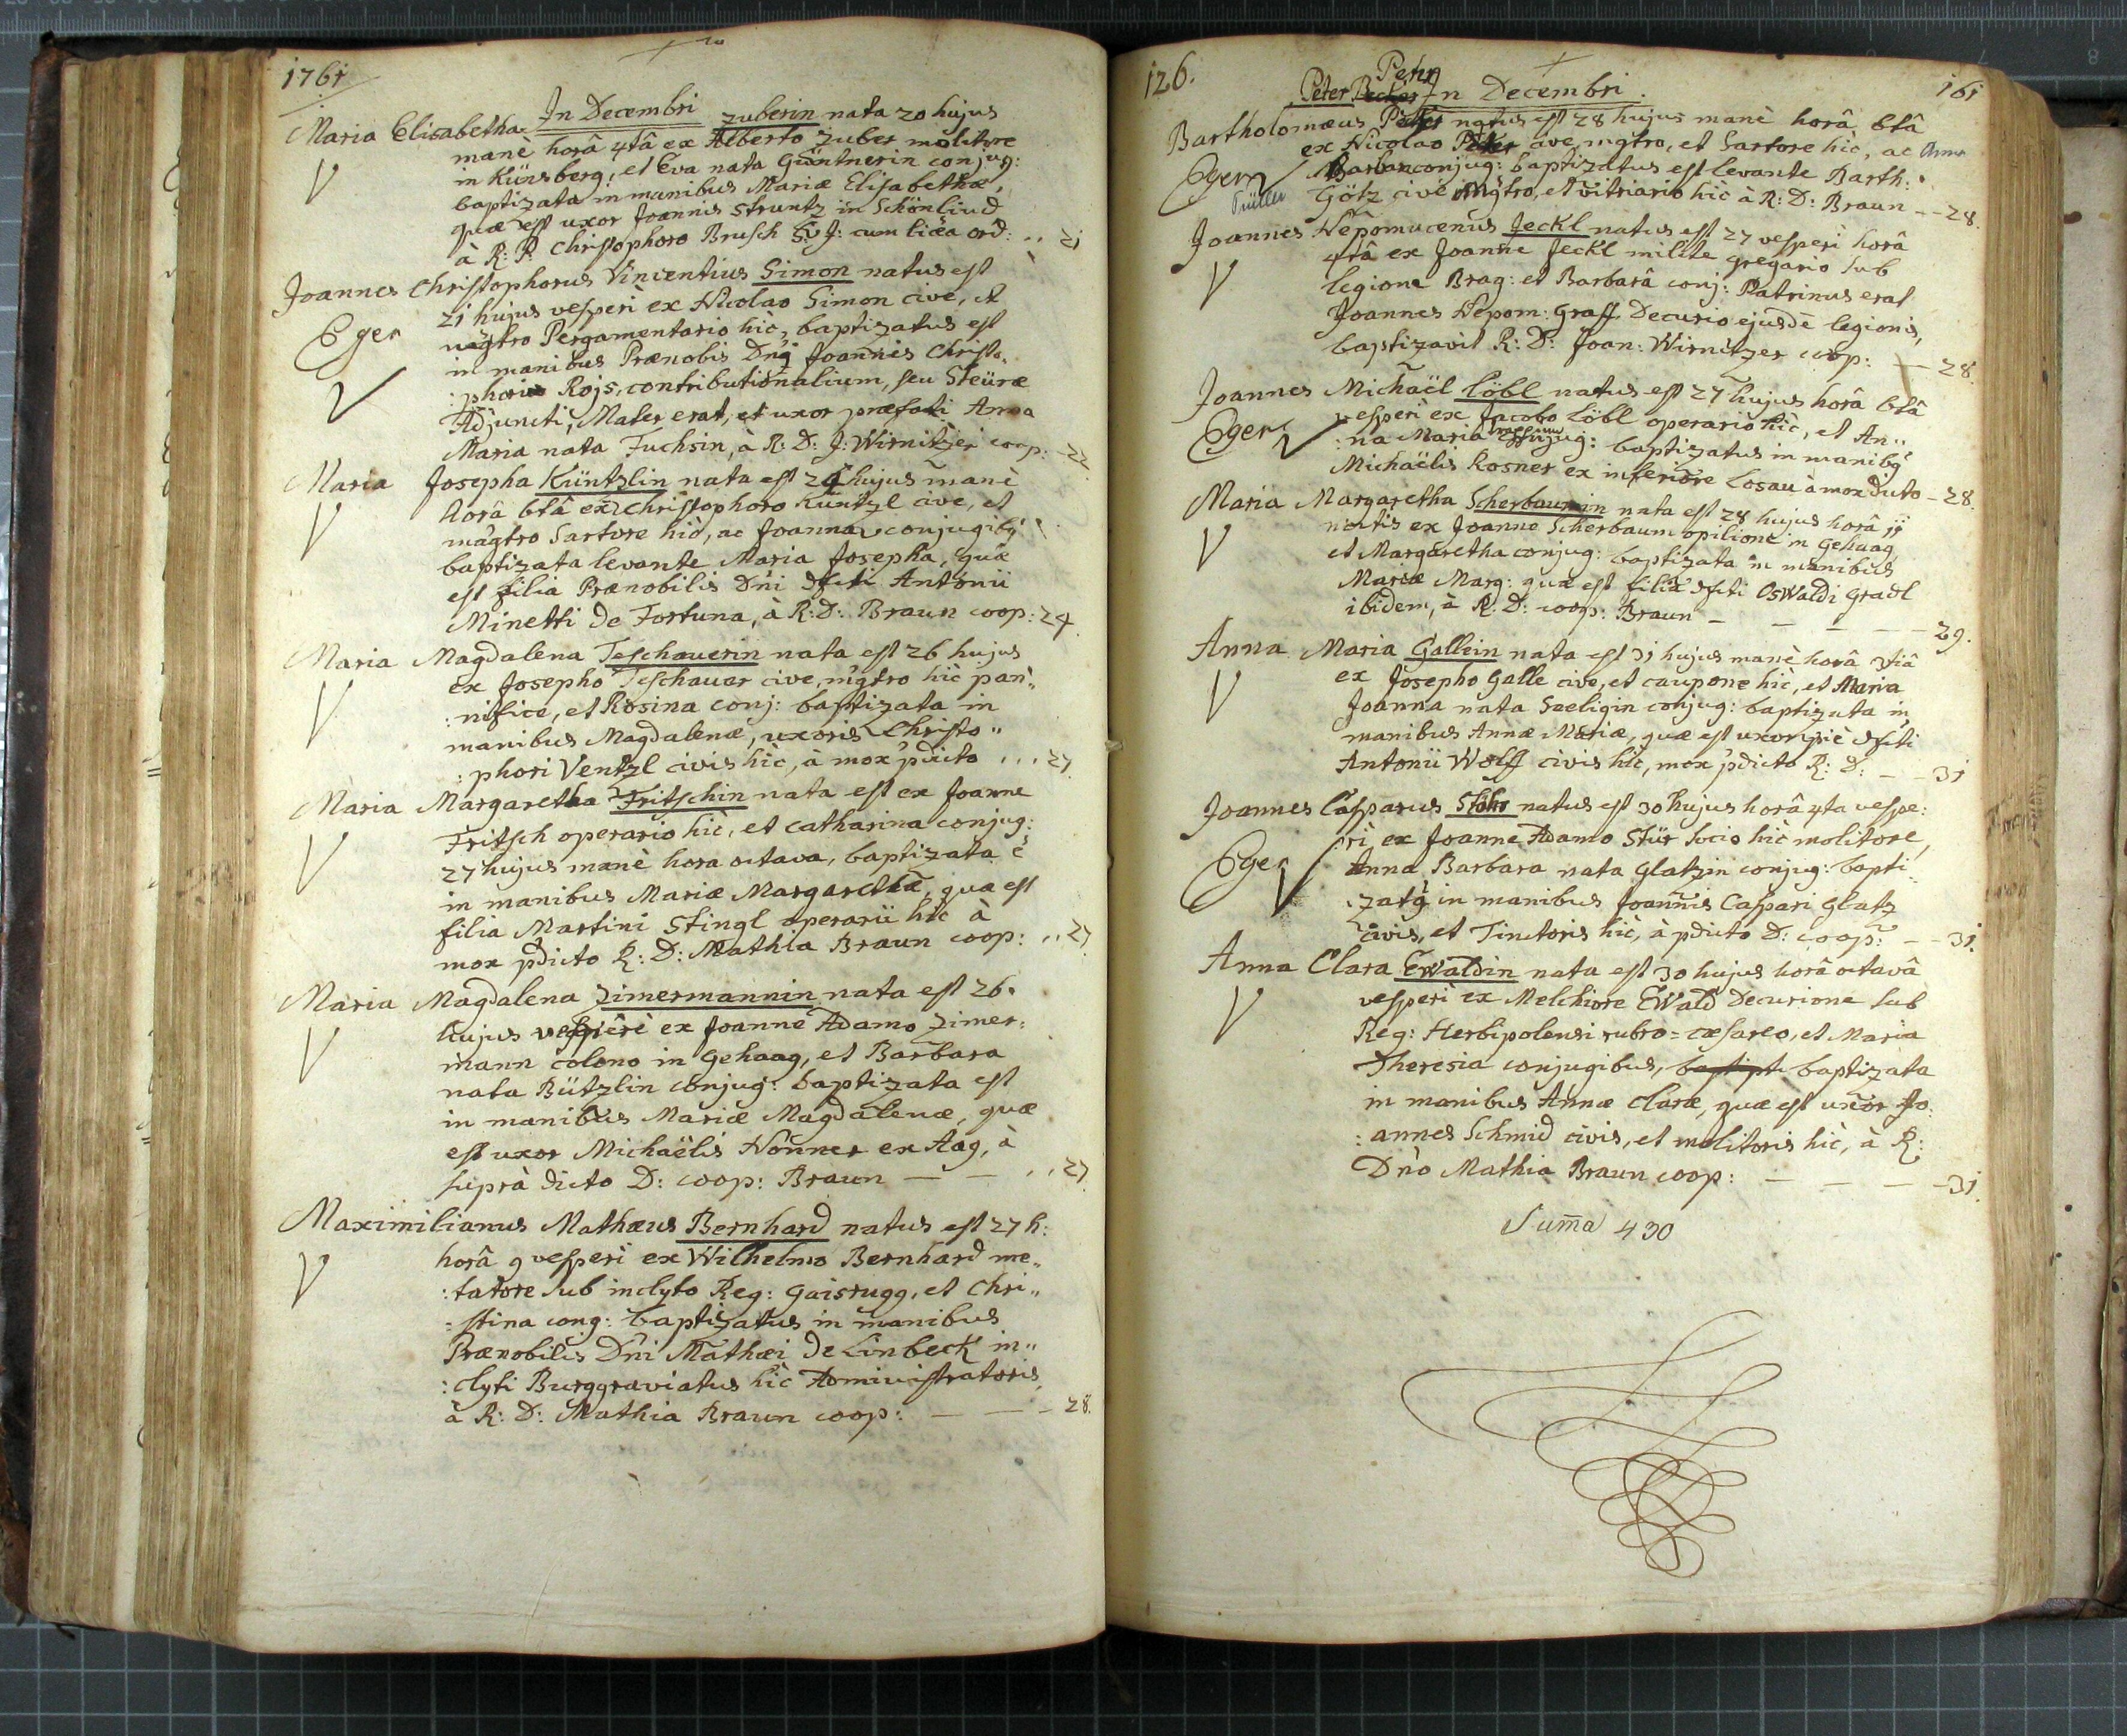 1761
In Decembri
Maria Elisabetha Zuberin nata 20 hujus
manè horâ 4tâ ex Alberto Zuber molitore
in Künsberg, et Eva nata Güntnerin conjug:
baptizata in manibus Mariæ Elisabethæ,
quæ est uxor Joannis Struntz in Schönliud
à R: P. Christophoro Brusch S: J: cum licĕa ord: .. 21
Joannes Christophorus Vincentius Simon natus est
21 hujus vesperi ex Nicolao Simon cive, et
Eger
mg̃tro Pergamentario hic, baptizatus est
in manibus Prænobis Dnj Joannis Christo
:phori Rojs, contributionalium, seu Steüræ
Adjuncti, Mater erat, et uxor præfati Anna
Maria nata Fuchsin, à R: D: J: Wirnitzer coop: - 22
Maria Josepha Küntzlin nata est 24 hujus manè
horâ 6tâ ex Christophoro Küntzl cive, et
magtro Sartore hic, ac Joanna conjugibg
baptizata levante Maria Josepha, quæ
est filia Prænobilis Dñi dfcti Antonii
Minetti de Fortuna, à R: D: Braun coop: 24.
Maria Magdalena Teschauerin nata est 26 hujus
ex Josepho Teschauer cive, mg̃tro hic pan"
:nifice, et Rosina conj: baptizata in
manibus Magdalenæ, uxoris Christo"
:phori Ventzl civis hic, à mox pdicto ... 27.
Maria Margaretha Fritschin nata est ex Joanne
Fritsch operario hic, et Catharina conjug:
27 hujus manè hora octava, baptizata ē
in manibus Mariæ Margarethæ, quæ est
filia Martini Stingl operarii hic à
mox pdicto R: D: Mathia Braun coop: .. 27
Maria Magdalena Zimermannin nata est 26.
hujus vesperi ex Joanne Adamo Zimer:
mann colono in Gehaag, et Barbara
nata Bützlin conjug: baptizata est
in manibus Mariæ Magdalenæ, quæ
est uxor Michaëlis Nonner ex Aag, à
suprà dicto D: coop: Braun — — .. 27.
Maximilianus Mathæus Bernhard natus est 27 h:
horâ 9 vesperi ex Wilhelmo Bernhard me"
:tatore sub inclyto Reg: Gaisrugg, et Chri"
:stina cong: baptizatus in manibus
Prænobilis Dñi Mathæi de Linbeck in"
:clyti Burggraviatus hic Administratoris
à R: D: Mathia Braun coop: — — - 28.
126.
Petr
Peter In Decembri.
161
Bartholomæus Peter natus est 28 hujus manè horâ 6tâ
ex Nicolao Peter cive, mgtro, et Sartore hic, ac Anna
Eger
Barbar conjug: baptizatus est levante Barth:
Götz cive mgtro, et vitriario hic à R: D: Braun -- 28.
Joannes Nepomucenus Jeckl natus est 27 vesperi horâ
4tâ ex Joanne Jeckl milite gregario sub
legione Brag: et Barbarâ conj: Patrinus erat
Joannes Nepom: Graff Decurio ejusdē legionis,
baptizavit R: D: Joan: Wirnitzer coop: — 28.
Joannes Michaël Löbl natus est 27 hujus horâ 6tâ
vesperi ex Jacobo Löbl operario hic, et An"
Eger
:na Maria conjug: baptizatus in manibg
Michaëlis Rosner ex inferiore Losau à mox dicto - 28.
Maria Margaretha Scherbaumin nata est 28 hujus horâ 11
noctis ex Joanne Scherbaum opilione in Gehaag,
et Margaretha conjug: baptizata in manibus
Mariæ Marg: quæ est filia dfcti Oswaldi Gradl
ibidem, à R: D: coop: Braun — — — 29.
Anna Maria Gallein nata est 31 hujus manè horâ 3tiâ
ex Josepho Galle cive, et caupone hic, et Maria
Joanna nata Saeligin conjug: baptizata in
manibus Annæ Mariæ, quæ est uxor piè dfcti
Antonii Wolff civis hic, mox pdicto R: D: — - 31
Joannes Casparus Stöhr natus est 30 hujus horâ 4ta vespe:
:ri ex Joanne Adamo Stür socio hic molitore,
Eger
Anna Barbara nata Glatzin conjug: bapti:
:zatg in manibus Joannis Caspari Glatz
civis, et Tinctoris hic, à pdicto D: coop: — - 31.
Anna Clara Ewaldin nata est 30 hujus horâ octavâ
vesperi ex Melchiore Ewald Decurione sub
Reg: Herbipolensi rubro = cæsareo, et Maria
Theresia conjugibus, baptizata
in manibus Annæ Claræ, quæ est uxor Jo:
:annes Schmid civis, et molitoris hic, à R:
Dño Mathia Braun coop: — — — - 31.
Sum̄a 430